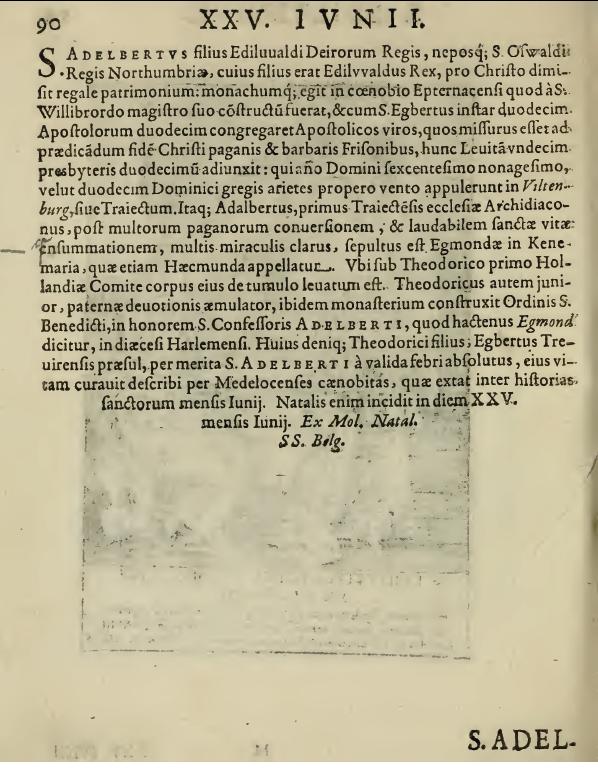 90 XXV. IVNII.
S ADELBERTVS filius Ediluualdi Deirorum Regis, neposq; S. Oſwaldi
. Regis Northumbriæ, cuius filius erat Edilvvaldus Rex, pro Chriſto dimi-
ſit regale patrimonium: monachumq; egit in cœnobio Epternacenſi quod à S.
Willibrordo magiſtro ſuo cõſtructũ fuerat, & cum S. Egbertus inſtar duodecim
Apoſtolorum duodecim congregaret Apoſtolicos viros, quos miſſurus eſſet ad
prædicãdum fidẽ Chriſti paganis & barbaris Friſonibus, hunc Leuitã vndecim
presbyteris duodecimũ adiunxit: qui año Domini ſexcenteſimo nonageſimo,
velut duodecim Dominici gregis arietes propero vento appulerunt in Vilten-
burg, ſiue Traiectum. Itaq; Adalbertus, primus Traiectẽſis eccleſiæ Archidiaco-
nus, poſt multorum paganorum conuerſionem, & laudabilem ſanctæ vitæ
conſummationem, multis miraculis clarus, ſepultus eſt Egmondæ in Kene-
maria, quæ etiam Hæcmunda appellatur. Vbi ſub Theodorico primo Hol-
landiæ Comite corpus eius de tumulo leuatum eſt. Theodoricus autem juni-
or, paternæ deuotionis æmulator, ibidem monaſterium conſtruxit Ordinis S.
Benedicti, in honorem S. Confeſſoris ADELBERTI, quod hactenus Egmond
dicitur, in diœceſi Harlemenſi. Huius deniq; Theodorici filius; Egbertus Tre-
uirenſis præſul, per merita S. ADELBERTI à valida febri abſolutus, eius vi-
tam curauit deſcribi per Medelocenſes cænobitas, quæ extat inter hiſtorias
ſanctorum menſis Iunij. Natalis enim incidit in diem XXV.
menſis Iunij. Ex Mol. Natal.
SS. Belg.
S. ADEL-